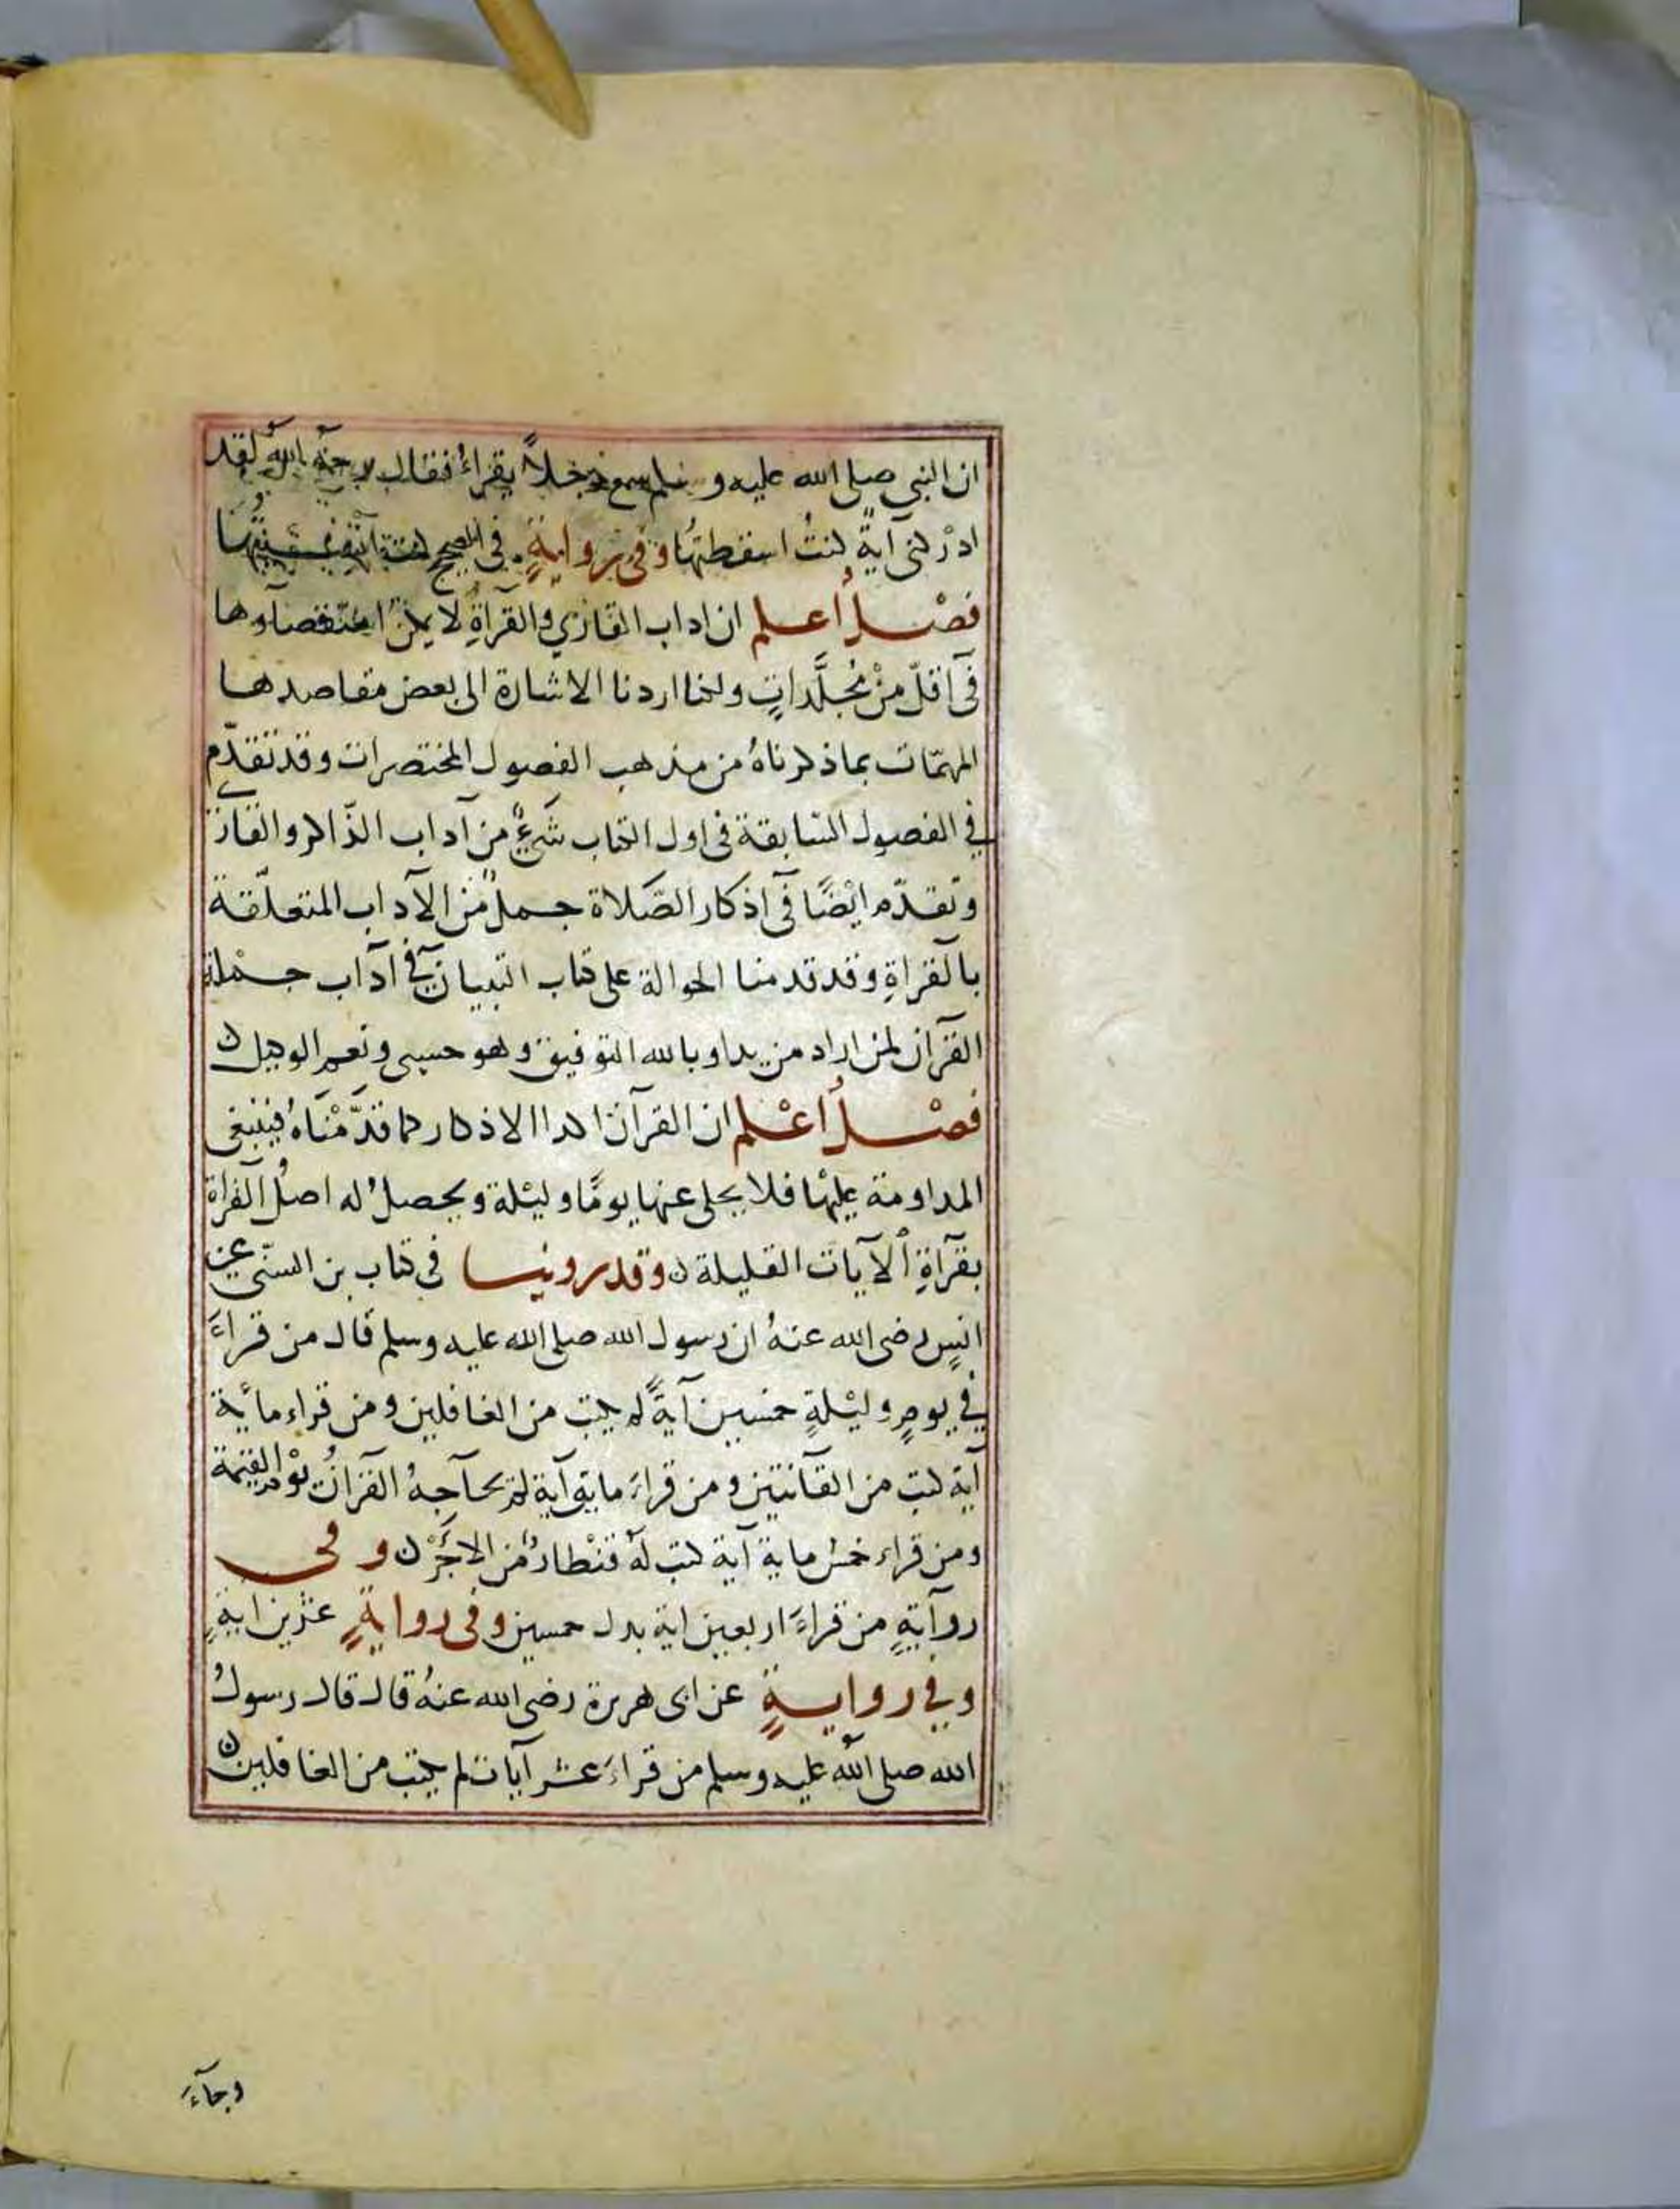 ان النبي صلى الله عليه وسلم سمع رجلاً يقراءُ فقال رحمهُ اللهُ لقد
اذكرني آيةً كنتُ اسقطتها وفي روايةٍ في الصحيح كنت انسيتها
فصْلٌ أعلم ان اداب القاري والقرآةِ لا يمكن استقصآوها
في اقلّ منْ مُجلَّداتٍ ولكنا اردنا الاشارة الى بعض مقاصدها
المهمّات بما ذكرناهُ من مذهب الفصول المختصرات وقد تقدّم
في الفصول السّابقة في اول الكتاب شيءٌ من آداب الذّاكر والقاري
وتقدّم ايْضًا في اذكار الصّلاة جملٌ من الآداب المتعلّقة
بالقراةِ وقد قدمنا الحوالة على كتاب التبيان في آداب حملة
القرآن لمن اراد مزيدا وبالله التوفيق وهو حسبي ونعم الوكيل ن
فصْلٌ أعْلم ان القرآن اكدا الاذكار كما قدَّمْنَاهُ فينبغي
المداومة عليْها فلا يخلى عنها يومًا وليْلة ويحصلُ له اصلُ القراة
بقرآةِ الآيات القليلة ن وقد روينا في كتاب بن السنّي عن
انسٍ رضي الله عنهُ ان رسول الله صلى الله عليه وسلم قال من قراءَ
في يومٍ وليْلةٍ خمسين آيةً لم يكتب من الغافلين ومن قراء مائة
آية كتب من القآنتين ومن قراءَ مايتي آية لم يحآجهُ القرآنُ يوْم القيمة
ومن قراء خمس ماية آية كتب لهُ قنْطارٌ من الاجْرِ ن وفي
روآيةٍ من قراءَ اربعين اية بدل خمسين وفي روايةٍ عشرين ايةٍ
وفي روايةٍ عن ابى هريرة رضي الله عنهُ قال قال رسولُ
الله صلى الله عليه وسلم من قراءَ عشر آيات لم يكتب من الغافلين ن
وجآءَ